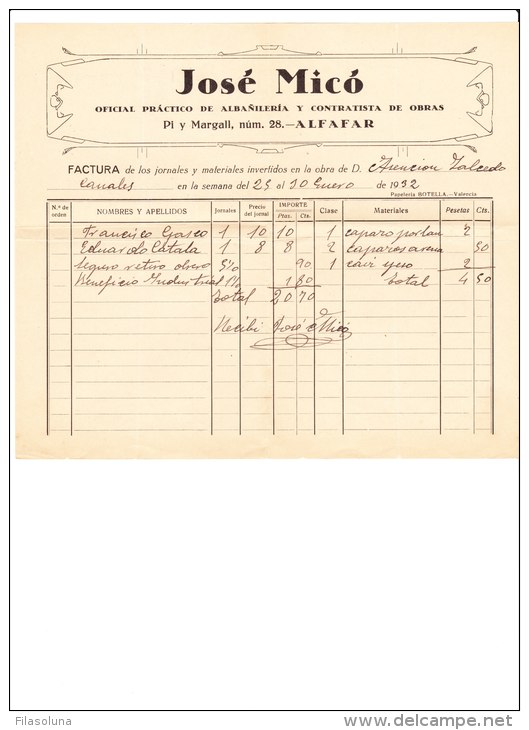 José Micó
OFICIAL PRÁCTICO DE ALBAÑILERÍA Y CONTRATISTA DE OBRAS
Pi y Margall, núm. 28.—ALFAFAR
FACTURA de los jornales y materiales invertidos en la obra de D. Asencion Salcedo
Canales en la semana del 25 al 30 Enero de 1932
Papelería BOTELLA.—Valencia
N.º de orden NOMBRES Y APELLIDOS Jornales Precio del jornal IMPORTE Ptas. Cts. Clase Materiales Pesetas Cts.
Francisco Gasco 1 10 10 1 caparo porlan 2
Eduardo Catala 1 8 8 2 caparos arena 50
Seguro retiro obrero 5% 90 1 caix yeso 2
Beneficio Industrial 1 80 total 4 50
total 20 70
Recibi José Micó
Filasoluna
www.delcampe.net